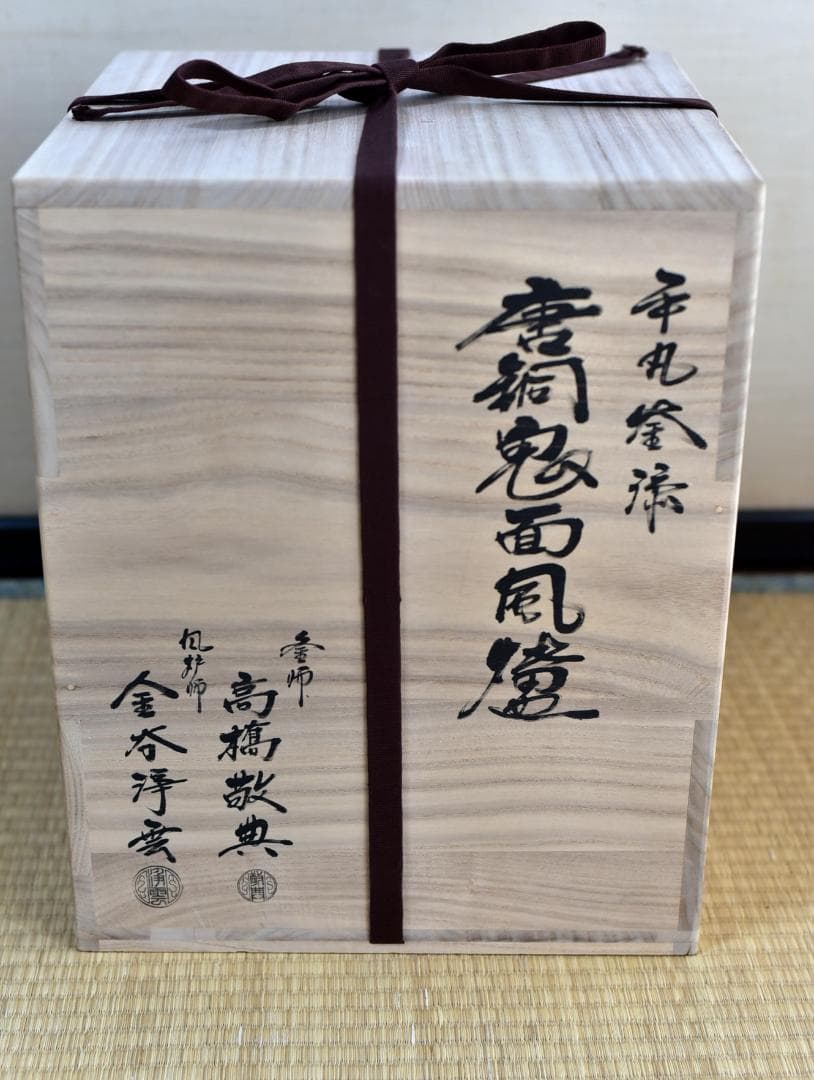 平丸釜添
唐銅鬼面風炉
釜師
高橋敬典
風炉師
金谷浄雲
敬典
浄雲